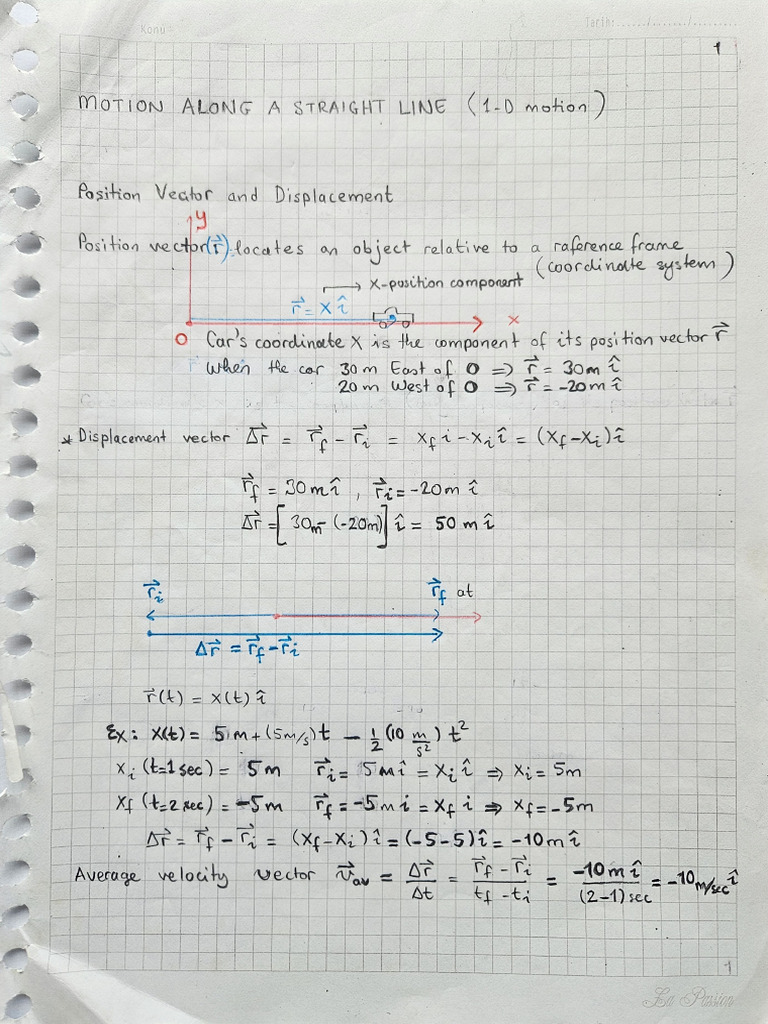 Konu:
Tarih:....../......./.........
1
MOTION ALONG A STRAIGHT LINE (1-D motion)
Position Vector and Displacement
y
Position vector (r⃗) locates an object relative to a raference frame
(coordinate system)
x-position component
r⃗ = x î
x
O Car's coordinate x is the component of its position vector r⃗
When the car 30m East of O ⇒ r⃗ = 30m î
20m West of O ⇒ r⃗ = -20m î
* Displacement vector Δr⃗ = r⃗f - r⃗i = xf i - xi î = (xf - xi) î
r⃗f = 30m î , r⃗i = -20m î
Δr⃗ = [30m - (-20m)] î = 50m î
r⃗i r⃗f at
Δr⃗ = r⃗f - r⃗i
r⃗(t) = x(t) î
Ex: x(t) = 5m + (5m/s) t - 1/2 (10 m/s²) t²
xi (t=1sec) = 5m r⃗i = 5m î = xi î ⇒ xi = 5m
xf (t=2sec) = -5m r⃗f = -5m i = xf i ⇒ xf = -5m
Δr⃗ = r⃗f - r⃗i = (xf - xi) î = (-5-5) î = -10m î
Average velocity vector v⃗av = Δr⃗/Δt = (r⃗f - r⃗i)/(tf - ti) = -10m î/(2-1)sec = -10 m/sec î
1
La Passion